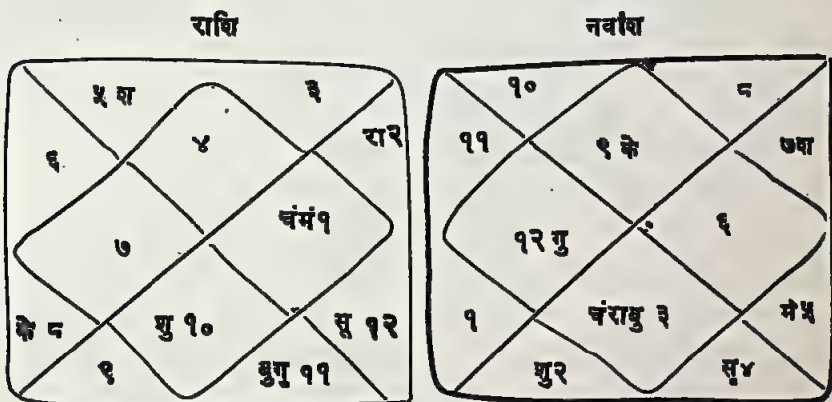 राशि
५ श
३
४
रा२
६
चंमं१
७
के ८
शु १०
सू १२
९
बुगु ११
नवांश
१०
८
११
९ के
७श
६
१२ गु
१
चंराबु ३
मं५
शु२
सू४